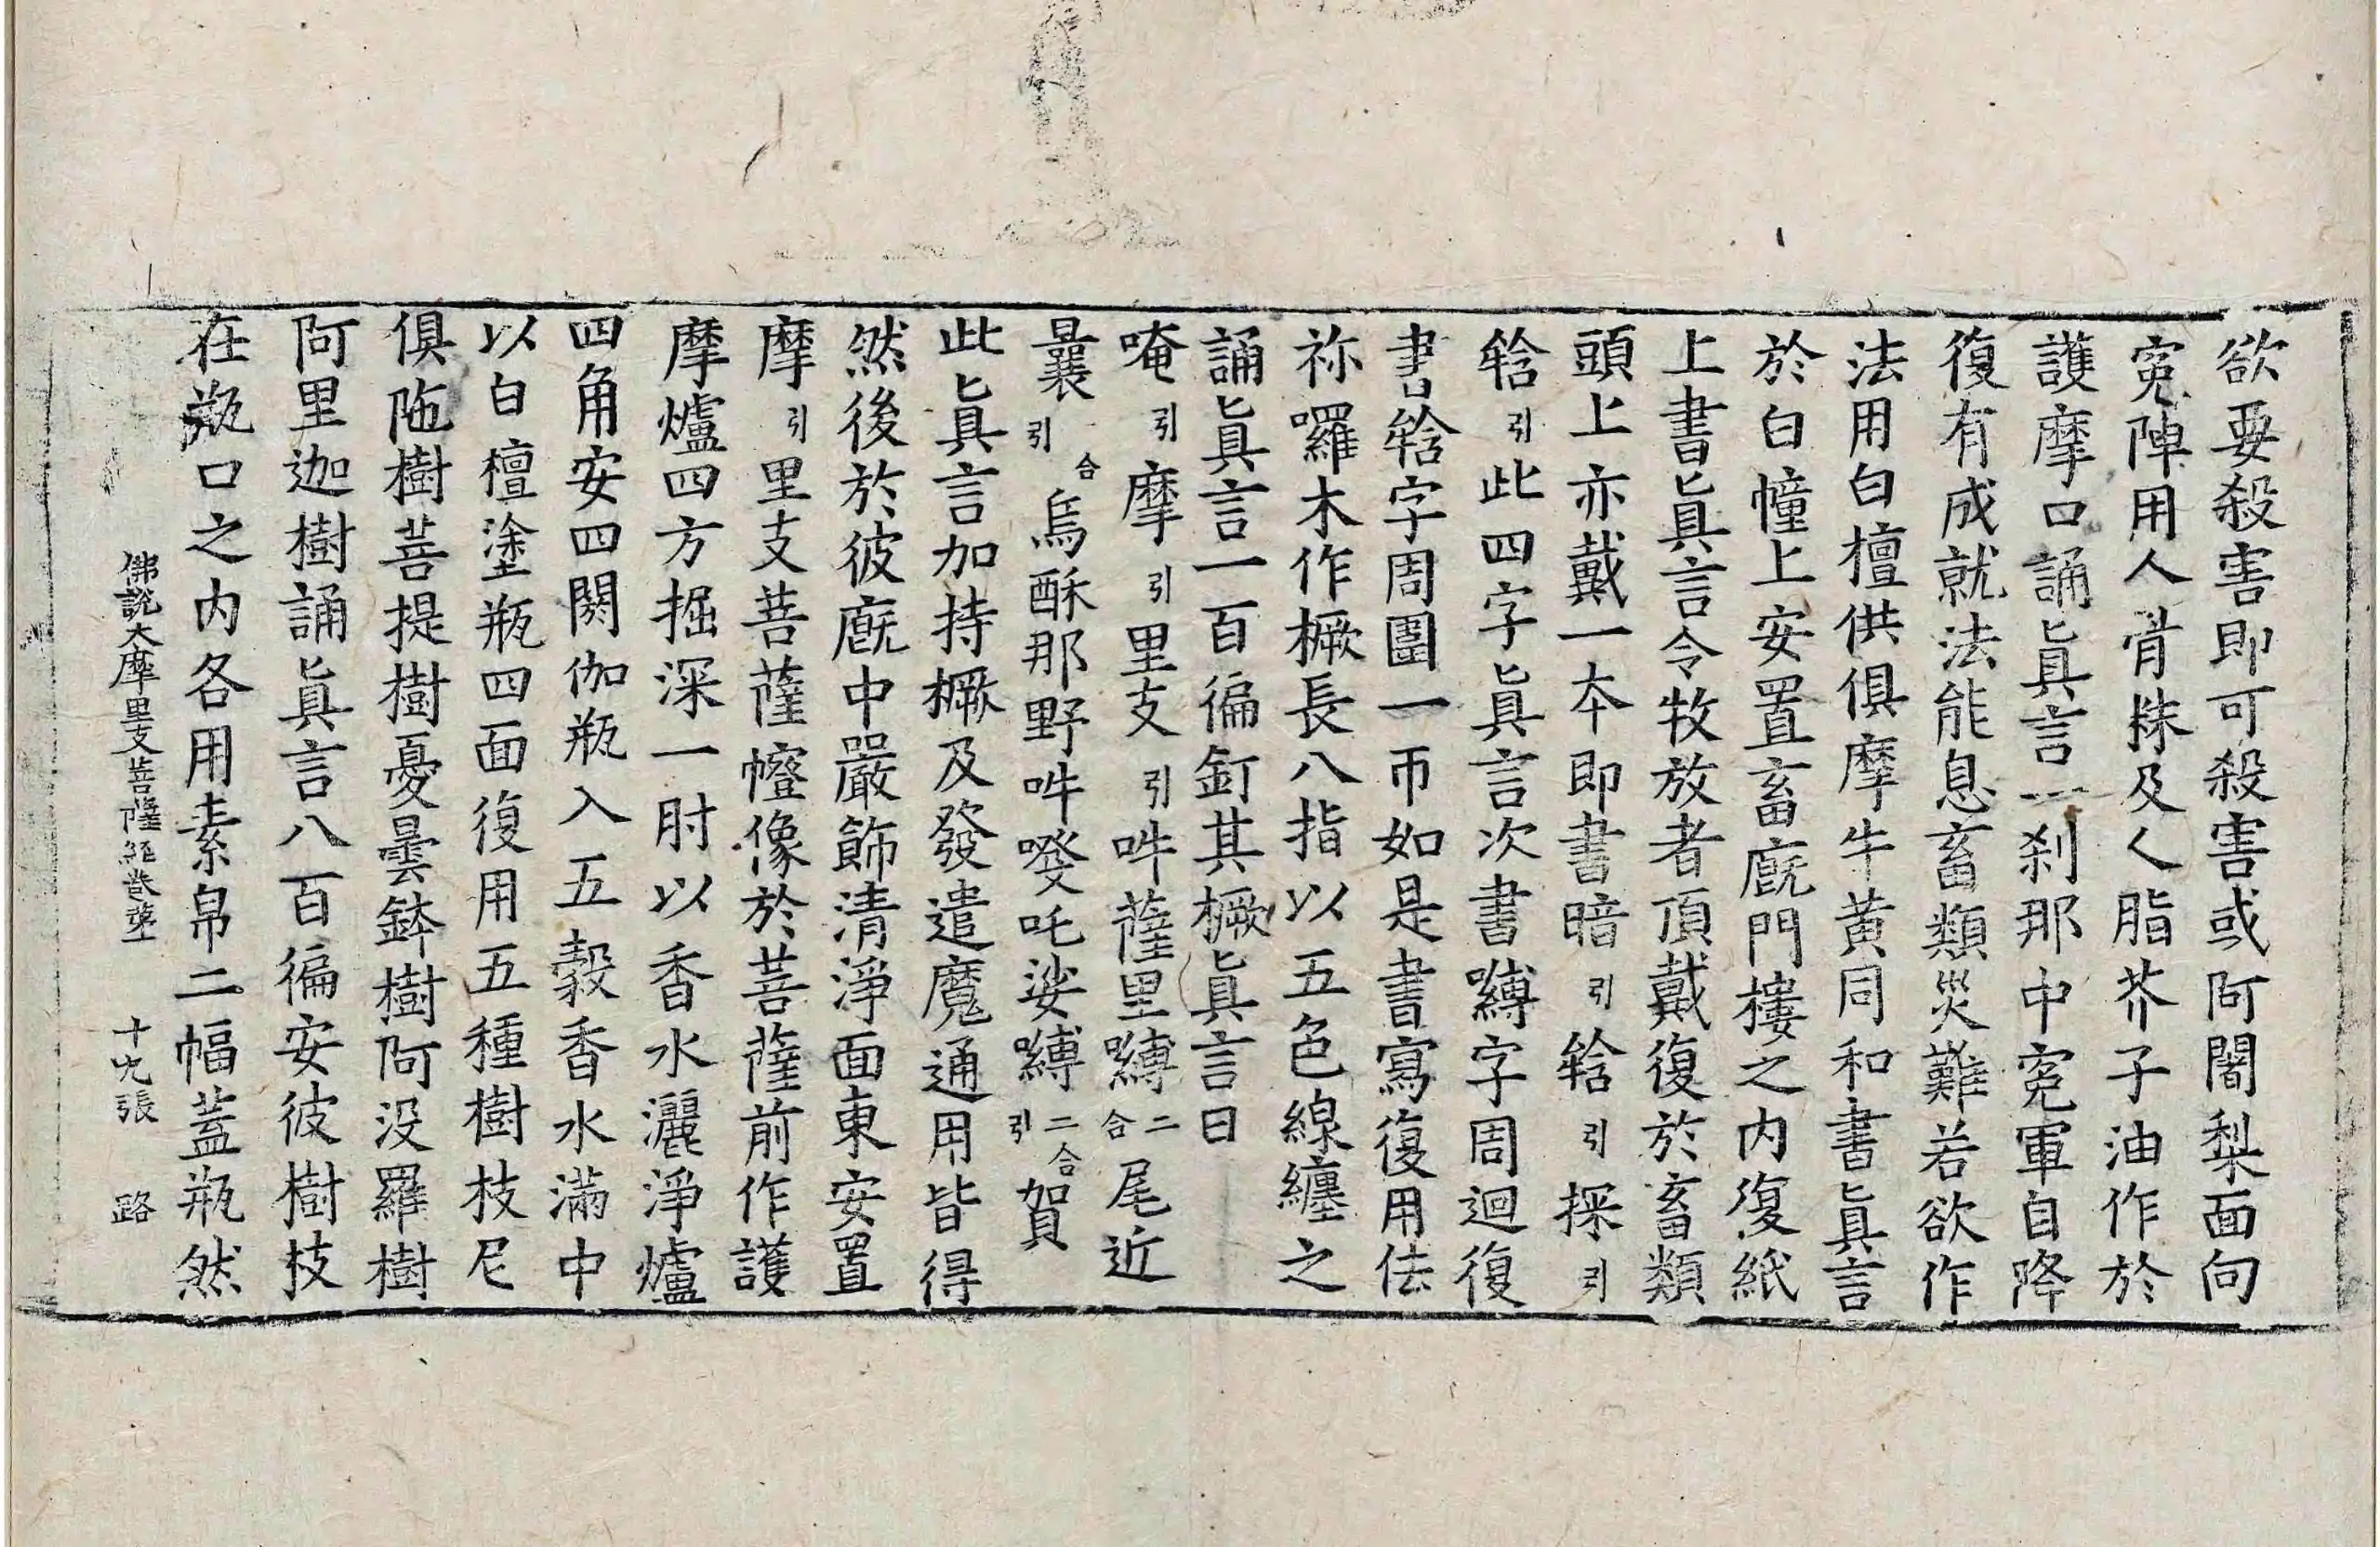 欲要殺害即可殺害或阿闍梨面向
寃陣用人骨株及人脂芥子油作於
護摩口誦眞言一刹那中寃軍自降
復有成就法能息畜類災難若欲作
法用白檀供俱摩牛黃同和書眞言
於白幢上安置畜廐門樓之内復紙
上書眞言令牧放者頂戴復於畜類
頭上亦戴一本即書暗引輡引採引
輡引此四字眞言次書嚩字周迴復
書輡字周圍一帀如是書寫復用佉
祢囉木作橛長八指以五色線纏之
誦眞言一百徧釘其橛眞言曰
唵引摩引里支引吽薩里嚩二合尾近
曩引合烏酥那野吽癹吒娑嚩二合引賀
此眞言加持橛及發遣魔通用皆得
然後於彼廐中嚴飾清淨面東安置
摩引里支菩薩㡧像於菩薩前作護
摩爐四方掘深一肘以香水灑淨爐
四角安四閼伽瓶入五穀香水滿中
以白檀塗瓶四面復用五種樹枝尼
俱陁樹菩提樹憂曇鉢樹阿没羅樹
阿里迦樹誦眞言八百徧安彼樹枝
在瓶口之内各用素帛二幅蓋瓶然
佛說大摩里支菩薩經卷第二 十九張 路